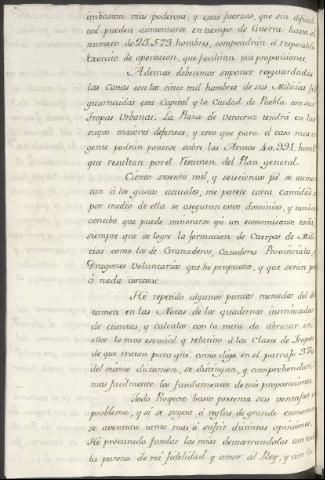 imbasion mas poderosa, y estas fuerzas, que sin dificul
tad pueden aumentarse en tiempo de Guerra hasta el
numero de 25.573 hombres, compondrán el respetable
Exercito de operacion, que facilitan mis proposiciones.
Ademas debemos suponer resguardadas
las costas con los cinco mil hombres de sus Milicias
guarnecidas esta Capital y la Ciudad de Puebla con sus
Tropas Urbanas. La Plaza de Veracruz tendrá en las
suyas maiores defensas, y creo que para el caso mas ur
gente podrán ponerse sobre las Armas 40.991. homb
que resultan por el Resumen del Plan general.
Ciento sesenta mil, y seiscientos ps. se aumen
tan á los gastos actuales, me parece corta cantidad
por medio de ella se aseguran estos dominios, y tambien
concibo que puede minorarse ya un economisarse toda
siempre que se logre la formacion de Cuerpos de Mili
cias como los de Granaderos, Cazadores Provinciales, y
Dragones Voluntarios que he propuesto, y que serán poco
ó nada costosos.
Hé repetido algunos puntos menudos del dic
tamen en las Notas de los quadernos instruidos
de cuentas, y calculos con la mira de abrazar en
ellos lo mas esencial y relativo á las Clases de Tropas
de que tratan para que como digo en el parrafo 374
del mismo dictamen, se distingan, y comprehendan
mas facilmente los fundamentos de mis proposiciones.
Todo Proyecto bajo presenta sus ventajas
problema, y si se sugeta á reglas de grande economia
se aventura tanto mas á sufrir distintas opiniones.
Hé procurado fundar las mias demostrandolas con toda
la pureza de mi fidelidad y amor al Rey, y con la